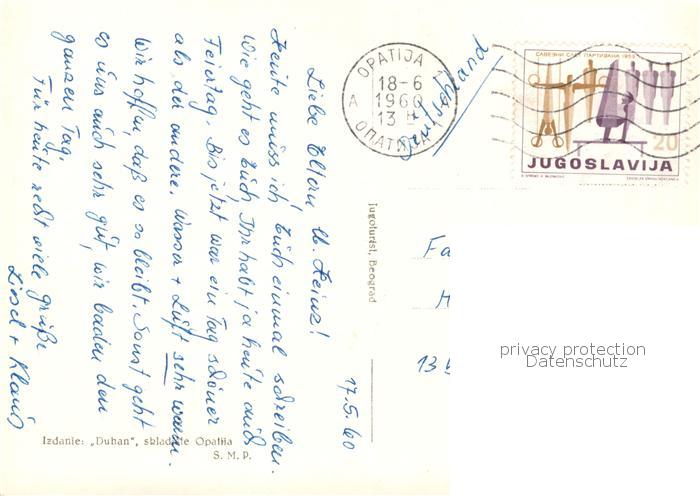 17.5.60
Liebe Eltern u. Heinz!
Heute muss ich Euch einmal schreiben.
Wie geht es Euch, Ihr habt ja heute auch
Feiertag. Bis jetzt war ein Tag schöner
als der andere. Wasser + Luft sehr warm.
Wir hoffen, daß es so bleibt. Sonst geht
es uns auch sehr gut, wir baden den
ganzen Tag.
Für heute recht viele Grüße
Liesel + Klaus
Izdanie: „Duhan", skladište Opatija
S. M. P.
Jugoturist, Beograd
OPATIJA
18-6
A 1960
13
ОПАТИЈА
Deutschland
САВЕЗНИ СЛЕТ ПАРТИЗАНА
20
JUGOSLAVIJA
Fa
H
13
privacy protection
Datenschutz